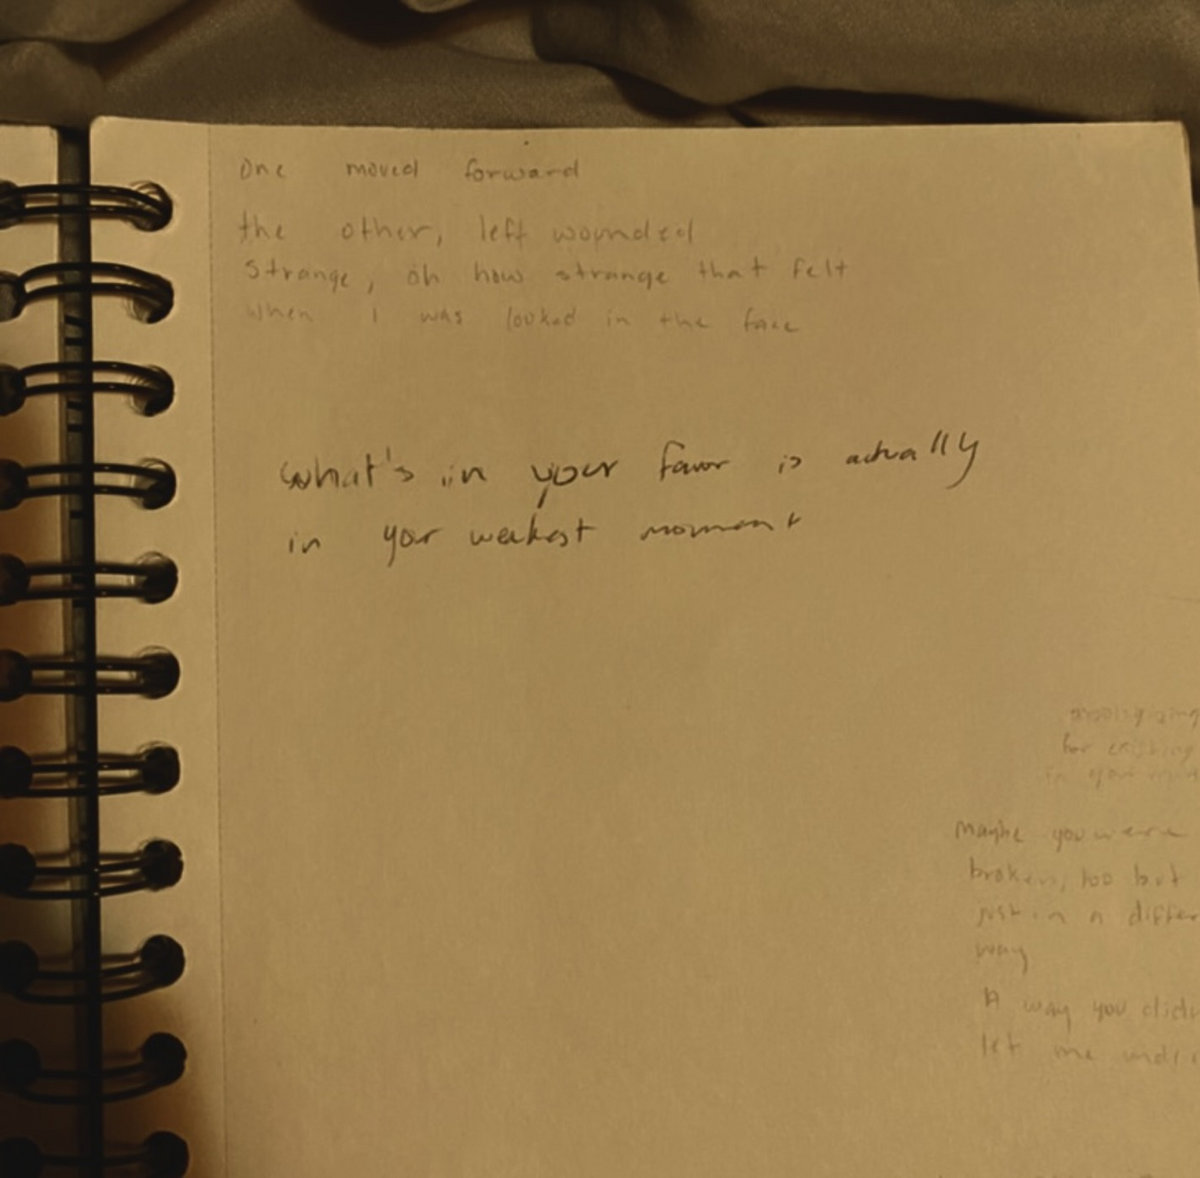 One moved forward
the other, left wounded
Strange, oh how strange that felt
when I was looked in the face
what's in your favor is actually
in your weakest moment
apologizing
for existing
in your
Maybe you were
broken, too but
just in a differ
way
A way you didn
let me